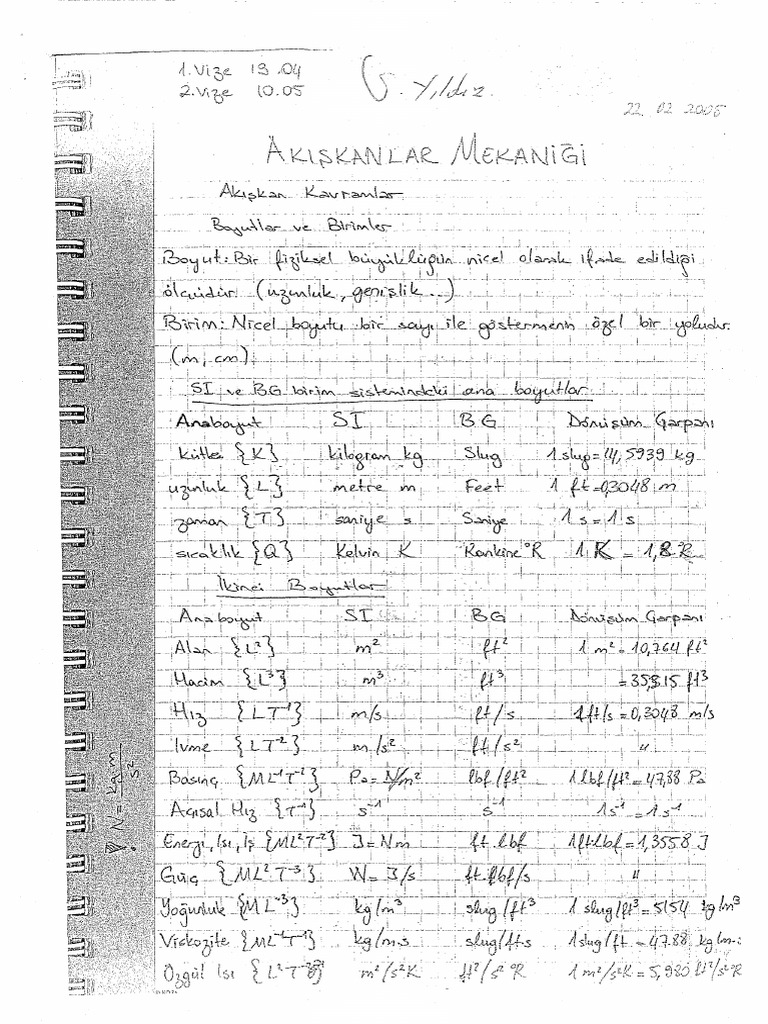 1.Vize 13.04
2.Vize 10.05
S. Yıldız
22.02.2005
AKIŞKANLAR MEKANİĞİ
Akışkan Kavramlar
Boyutlar ve Birimler
Boyut: Bir fiziksel büyüklüğün nicel olarak ifade edildiği
ölçüdür (uzunluk, genişlik...)
Birim: Nicel boyutu bir sayı ile göstermenin özel bir yoludur.
(m, cm)
SI ve BG birim sistemindeki ana boyutlar
Anaboyut SI BG Dönüşüm Çarpanı
Kütle {K} kilogram kg Slug 1 slug=14,5939 kg
uzunluk {L} metre m Feet 1 ft=0,3048 m
zaman {T} saniye s Saniye 1 s = 1 s
sıcaklık {Q} Kelvin K Rankine °R 1 K = 1,8 °R
İkinci Boyutlar
Anaboyut SI BG Dönüşüm Çarpanı
Alan {L²} m² ft² 1 m² = 10,764 ft²
Hacim {L³} m³ ft³ = 35,315 ft³
Hız {LT⁻¹} m/s ft/s 1ft/s = 0,3048 m/s
İvme {LT⁻²} m/s² ft/s² "
Basınç {ML⁻¹T⁻²} Pa = N/m² lbf/ft² 1 lbf/ft² = 47,88 Pa
Açısal Hız {T⁻¹} s⁻¹ s⁻¹ 1s⁻¹ = 1s⁻¹
Enerji, Isı, İş {ML²T⁻²} J = Nm ft lbf 1ft.lbf = 1,3558 J
Güç {ML²T⁻³} W = J/s ft.lbf/s "
Yoğunluk {ML⁻³} kg/m³ slug/ft³ 1 slug/ft³ = 515,4 kg/m³
Viskozite {ML⁻¹T⁻¹} kg/m.s slug/ft.s 1slug/ft = 47.88 kg/m.
Özgül Isı {L²T⁻²Q⁻¹} m²/s²K ft²/s² °R 1 m²/s²K = 5,980 ft²/s²°R
! N = kg.m/s²